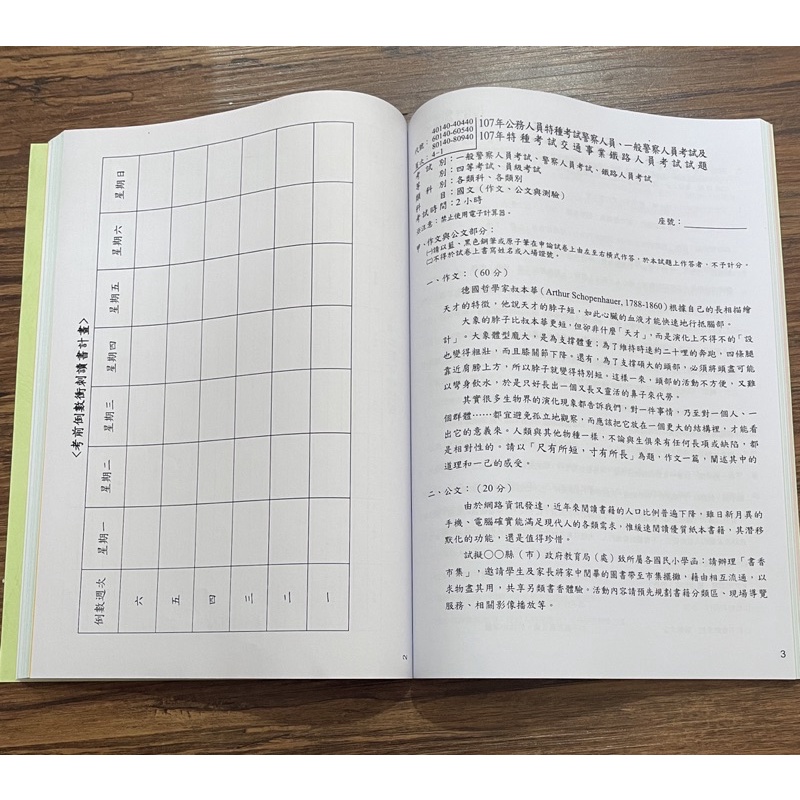 <考前倒數衝刺讀書計畫>
倒數週次 星期一 星期二 星期三 星期四 星期五 星期六 星期日
六
五
四
三
二
一
2
代號：
40140-40440
60140-60540
80140-80940
頁次：4-1
107年公務人員特種考試警察人員、一般警察人員考試及
107年特種考試交通事業鐵路人員考試試題
考試別：一般警察人員考試、警察人員考試、鐵路人員考試
等別：四等考試、員級考試
類科別：各類科、各類別
科目：國文（作文、公文與測驗）
考試時間：2 小時
座號：
※注意：禁止使用電子計算器。
甲、作文與公文部分：
㈠請以藍、黑色鋼筆或原子筆在申論試卷上由左至右橫式作答，於本試題上作答者，不予計分。
㈡不得於試卷上書寫姓名或入場證號。
一、作文：（60 分）
德國哲學家叔本華（Arthur Schopenhauer, 1788-1860）根據自己的長相描繪
天才的特徵，他說天才的脖子短，如此心臟的血液才能快速地行抵腦部。
大象的脖子比叔本華更短，但卻非什麼「天才」，而是演化上不得不的「設
計」。大象體型龐大，是為支撐體重；為了維持時速約二十哩的奔跑，四條腿
也變得粗壯，而且膝關節下降。還有，為了支撐碩大的頭部，必須將頭盡可能
靠近肩膀上方，所以脖子就變得特別短。這樣一來，頭部的活動不方便，又難
以彎身飲水，於是只好長出一個又長又靈活的鼻子來代勞。
其實很多生物界的演化現象都告訴我們，對一件事情，乃至對一個人、一
個群體……都宜避免孤立地觀察，而應該把它放在一個更大的結構裡，才能看
出它的意義來。人類與其他物種一樣，不論與生俱來有任何長項或缺陷，都
是相對性的。請以「尺有所短，寸有所長」為題，作文一篇，闡述其中的
道理和一己的感受。
二、公文：（20 分）
由於網路資訊發達，近年來閱讀書籍的人口比例普遍下降，雖日新月異的
手機、電腦確實能滿足現代人的各類需求，惟緩速閱讀優質紙本書籍，其潛移
默化的功能，還是值得珍惜。
試擬○○縣（市）政府教育局（處）致所屬各國民小學函：請辦理「書香
市集」，邀請學生及家長將家中閒畢的圖書帶至市集擺攤，藉由相互流通，以
求物盡其用，共享另類書香體驗。活動內容請預先規劃書籍分類區、現場導覽
服務、相關影像播放等。
3